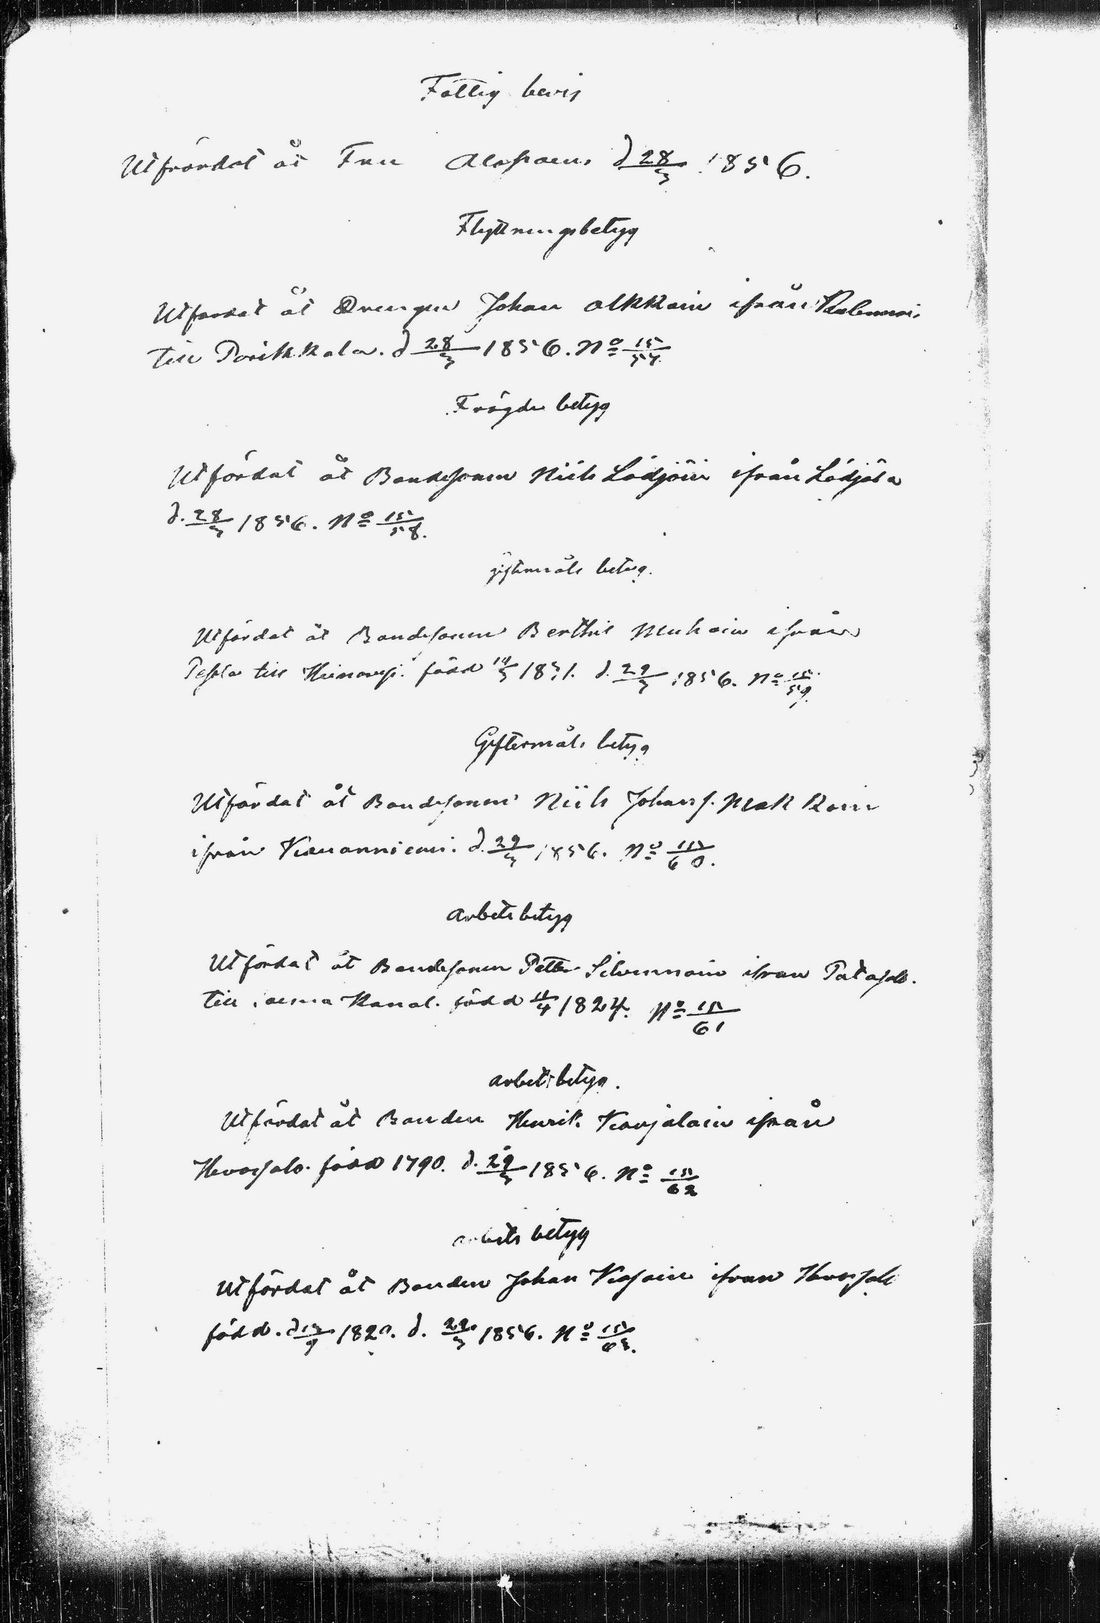 Fattig bevis
Utfärdat åt Fru d 28/3 1856.
Flyttningsbetyg
Utfärdat åt Drengen Johan Olkkoin ifrån
till Parikkala. d 28/3 1856. No 15/57
Frägde betyg
Utfärdat åt Bondesonen Niils Lödjöin ifrån Lödjölä
d. 28/3 1856. No 15/58.
giftermåls betyg.
Utfärdat åt Bondesonen Berthil Muhoin ifrån
till född 1831. d. 29/3 1856. No 15/59.
Giftermåls betyg
Utfärdat åt Bondesonen Niils Johans s. Makkoin
ifrån Kaunanniemi. d. 29/3 1856. No 15/60.
Arbets betyg
Utfärdat åt Bondesonen Petter Silvennoin ifrån
till Saima Kanal. född 1824. No 15/61
arbets betyg.
Utfärdat åt Bonden Henrik Karjalain ifrån
född 1790. d. 29/3 1856. No 15/62
arbets betyg
Utfärdat åt Bonden Johan ifrån
född. d. 29/3 1856. No 15/63.